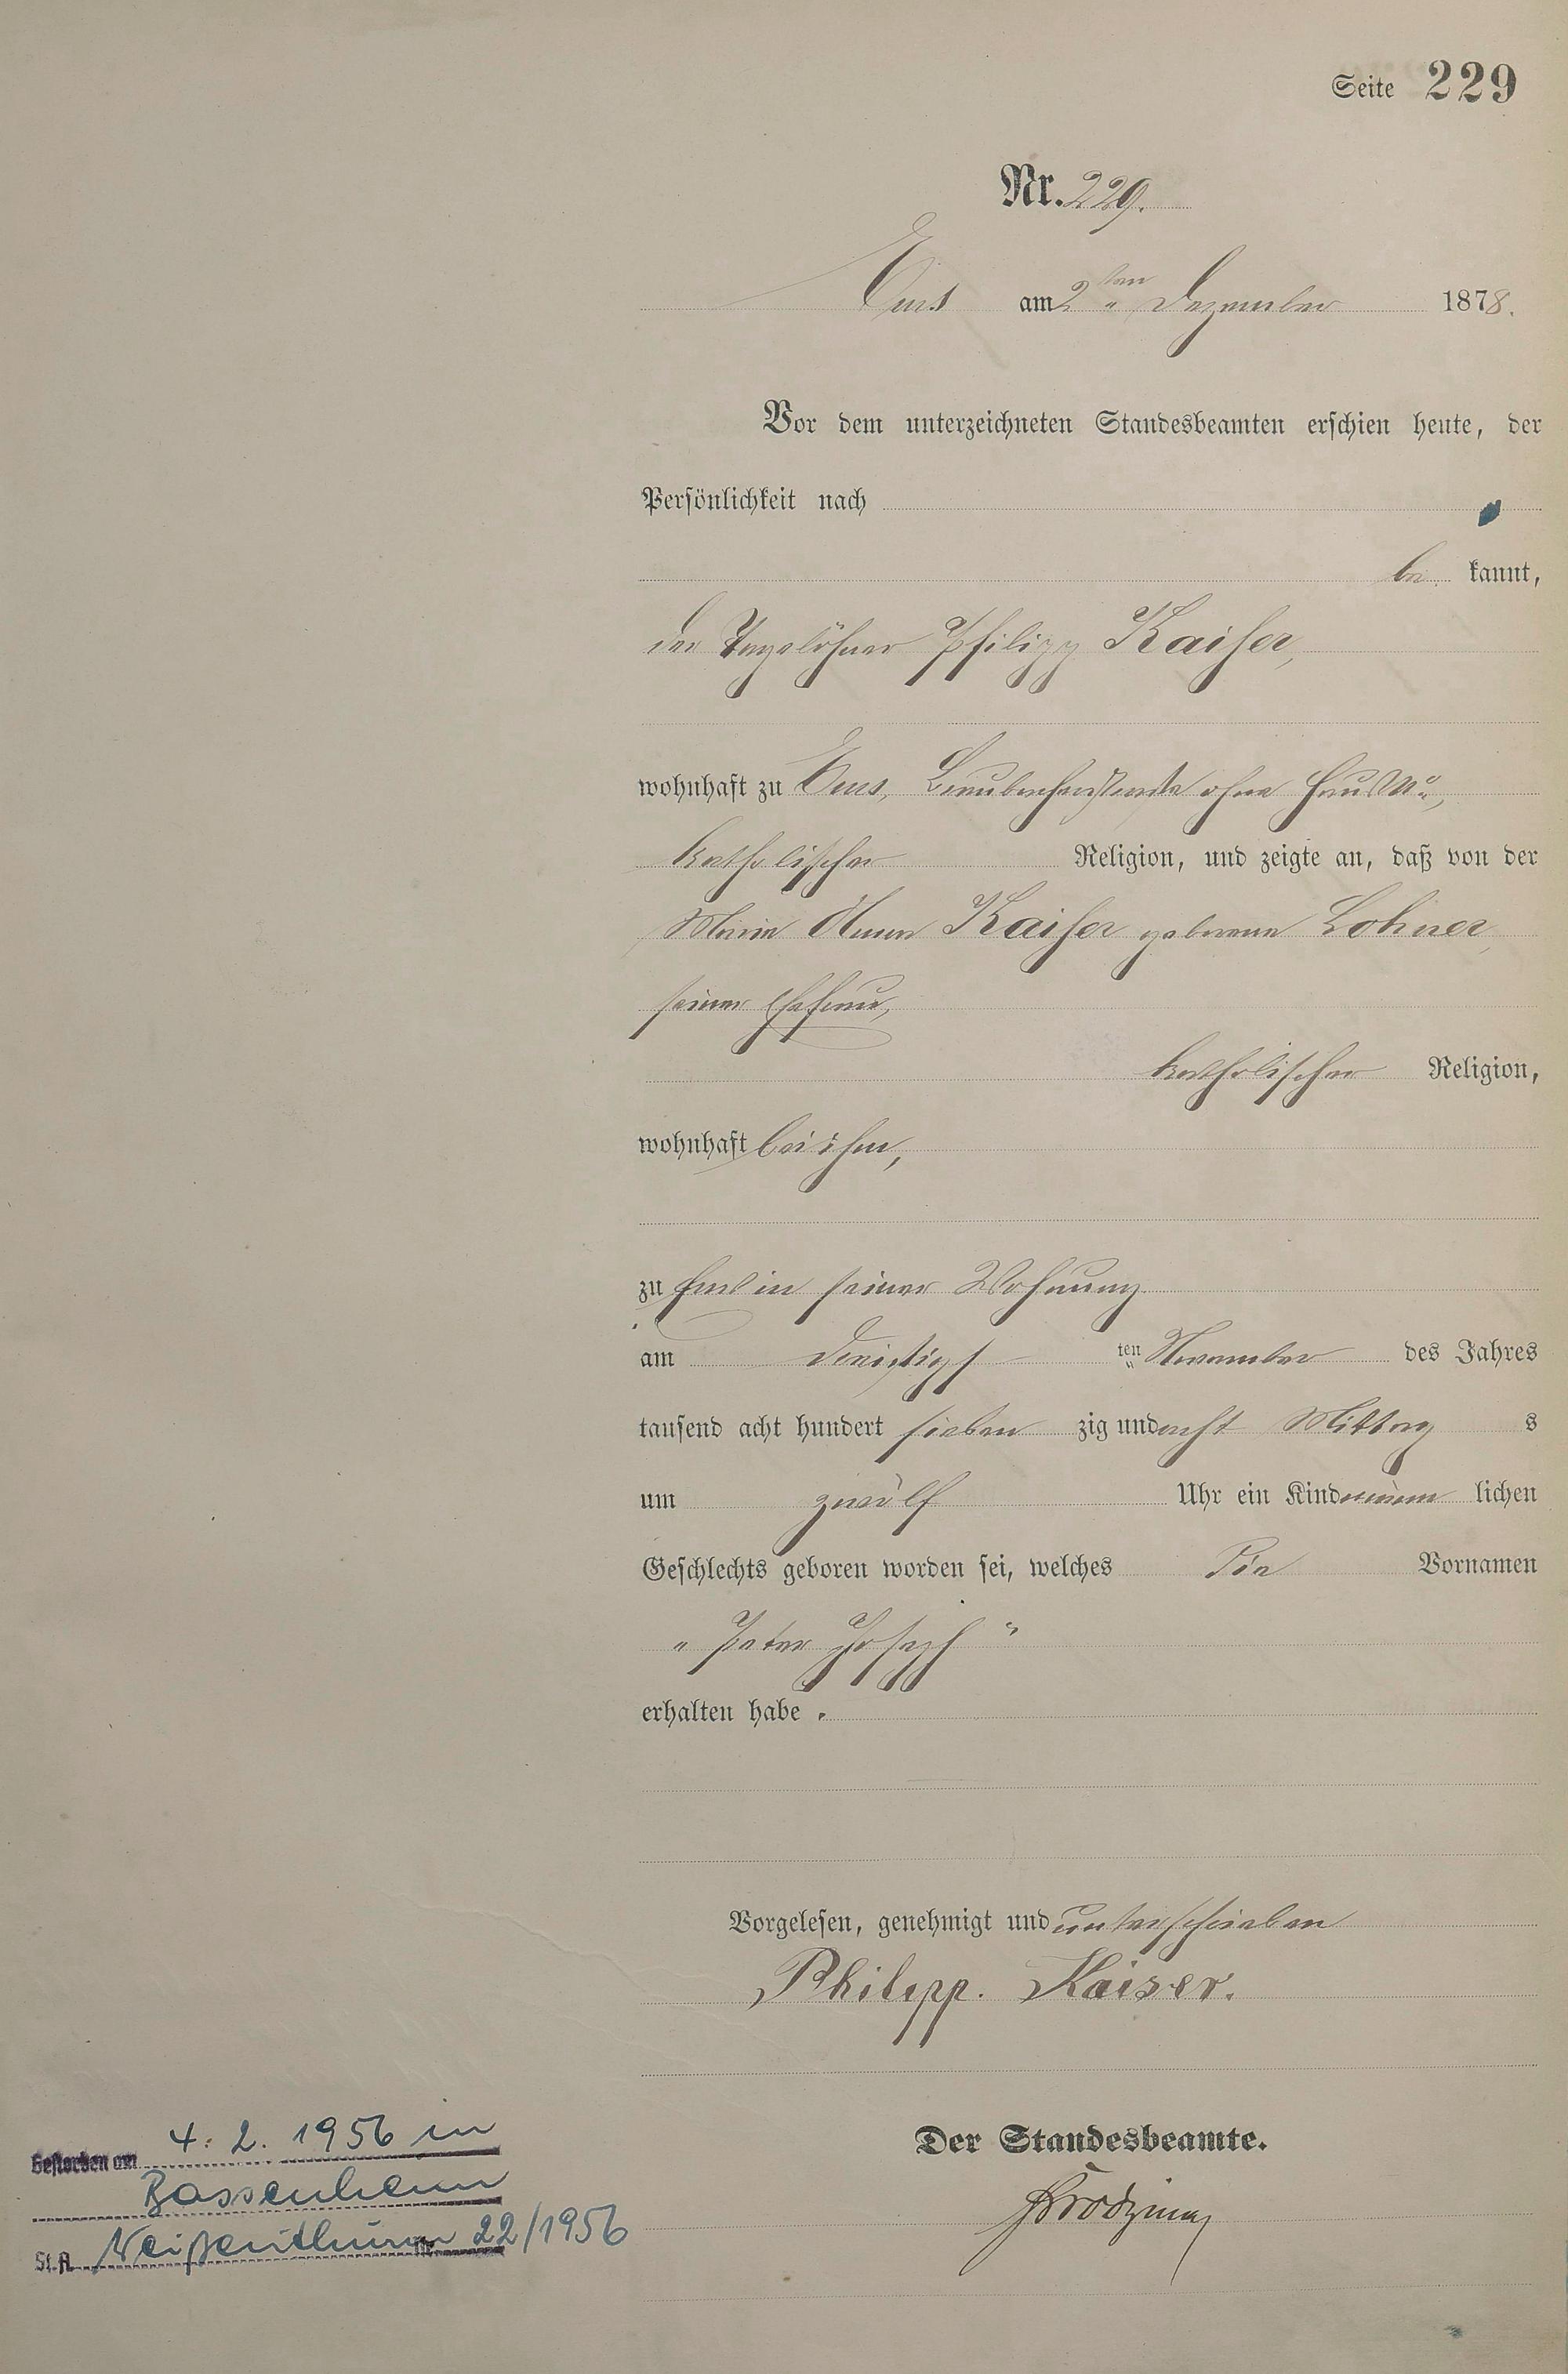 Seite 229
Nr. 229.
Ems am 2ten Dezember 1878.
Vor dem unterzeichneten Standesbeamten erschien heute, der
Persönlichkeit nach
be kannt,
der Tagelöhner Philipp Kaiser,
wohnhaft zu Ems, ohne Haus No,
katholischer Religion, und zeigte an, daß von der
Maria Anna Kaiser geborene Lohner,
seiner Ehefrau,
katholischer Religion,
wohnhaft bei ihm,
zu Ems in seiner Wohnung
am dreißigs ten November des Jahres
tausend acht hundert sieben zig und acht Mittag s
um zwölf Uhr ein Kind männ lichen
Geschlechts geboren worden sei, welches die Vornamen
„Peter Joseph“
erhalten habe.
Vorgelesen, genehmigt und unterschrieben
Philipp. Kaiser.
Der Standesbeamte.
Gestorben am 4. 2. 1956 in
Bassenheim
St.A. Weißenthurm Nr. 22/1956